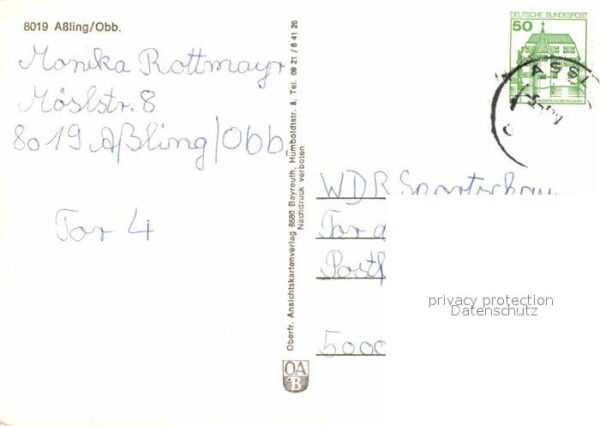 8019 Aßling/Obb.
Monika Rottmayr
Möslstr. 8
8019 Aßling/Obb.
Tor 4
Oberfr. Ansichtskartenverlag 8580 Bayreuth, Humboldtstr. 5, Tel. 09 21 / 6 41 26
Nachdruck verboten
OA
B
DEUTSCHE BUNDESPOST
50
ASSL
WDR
Postf
5000
privacy protection
Datenschutz